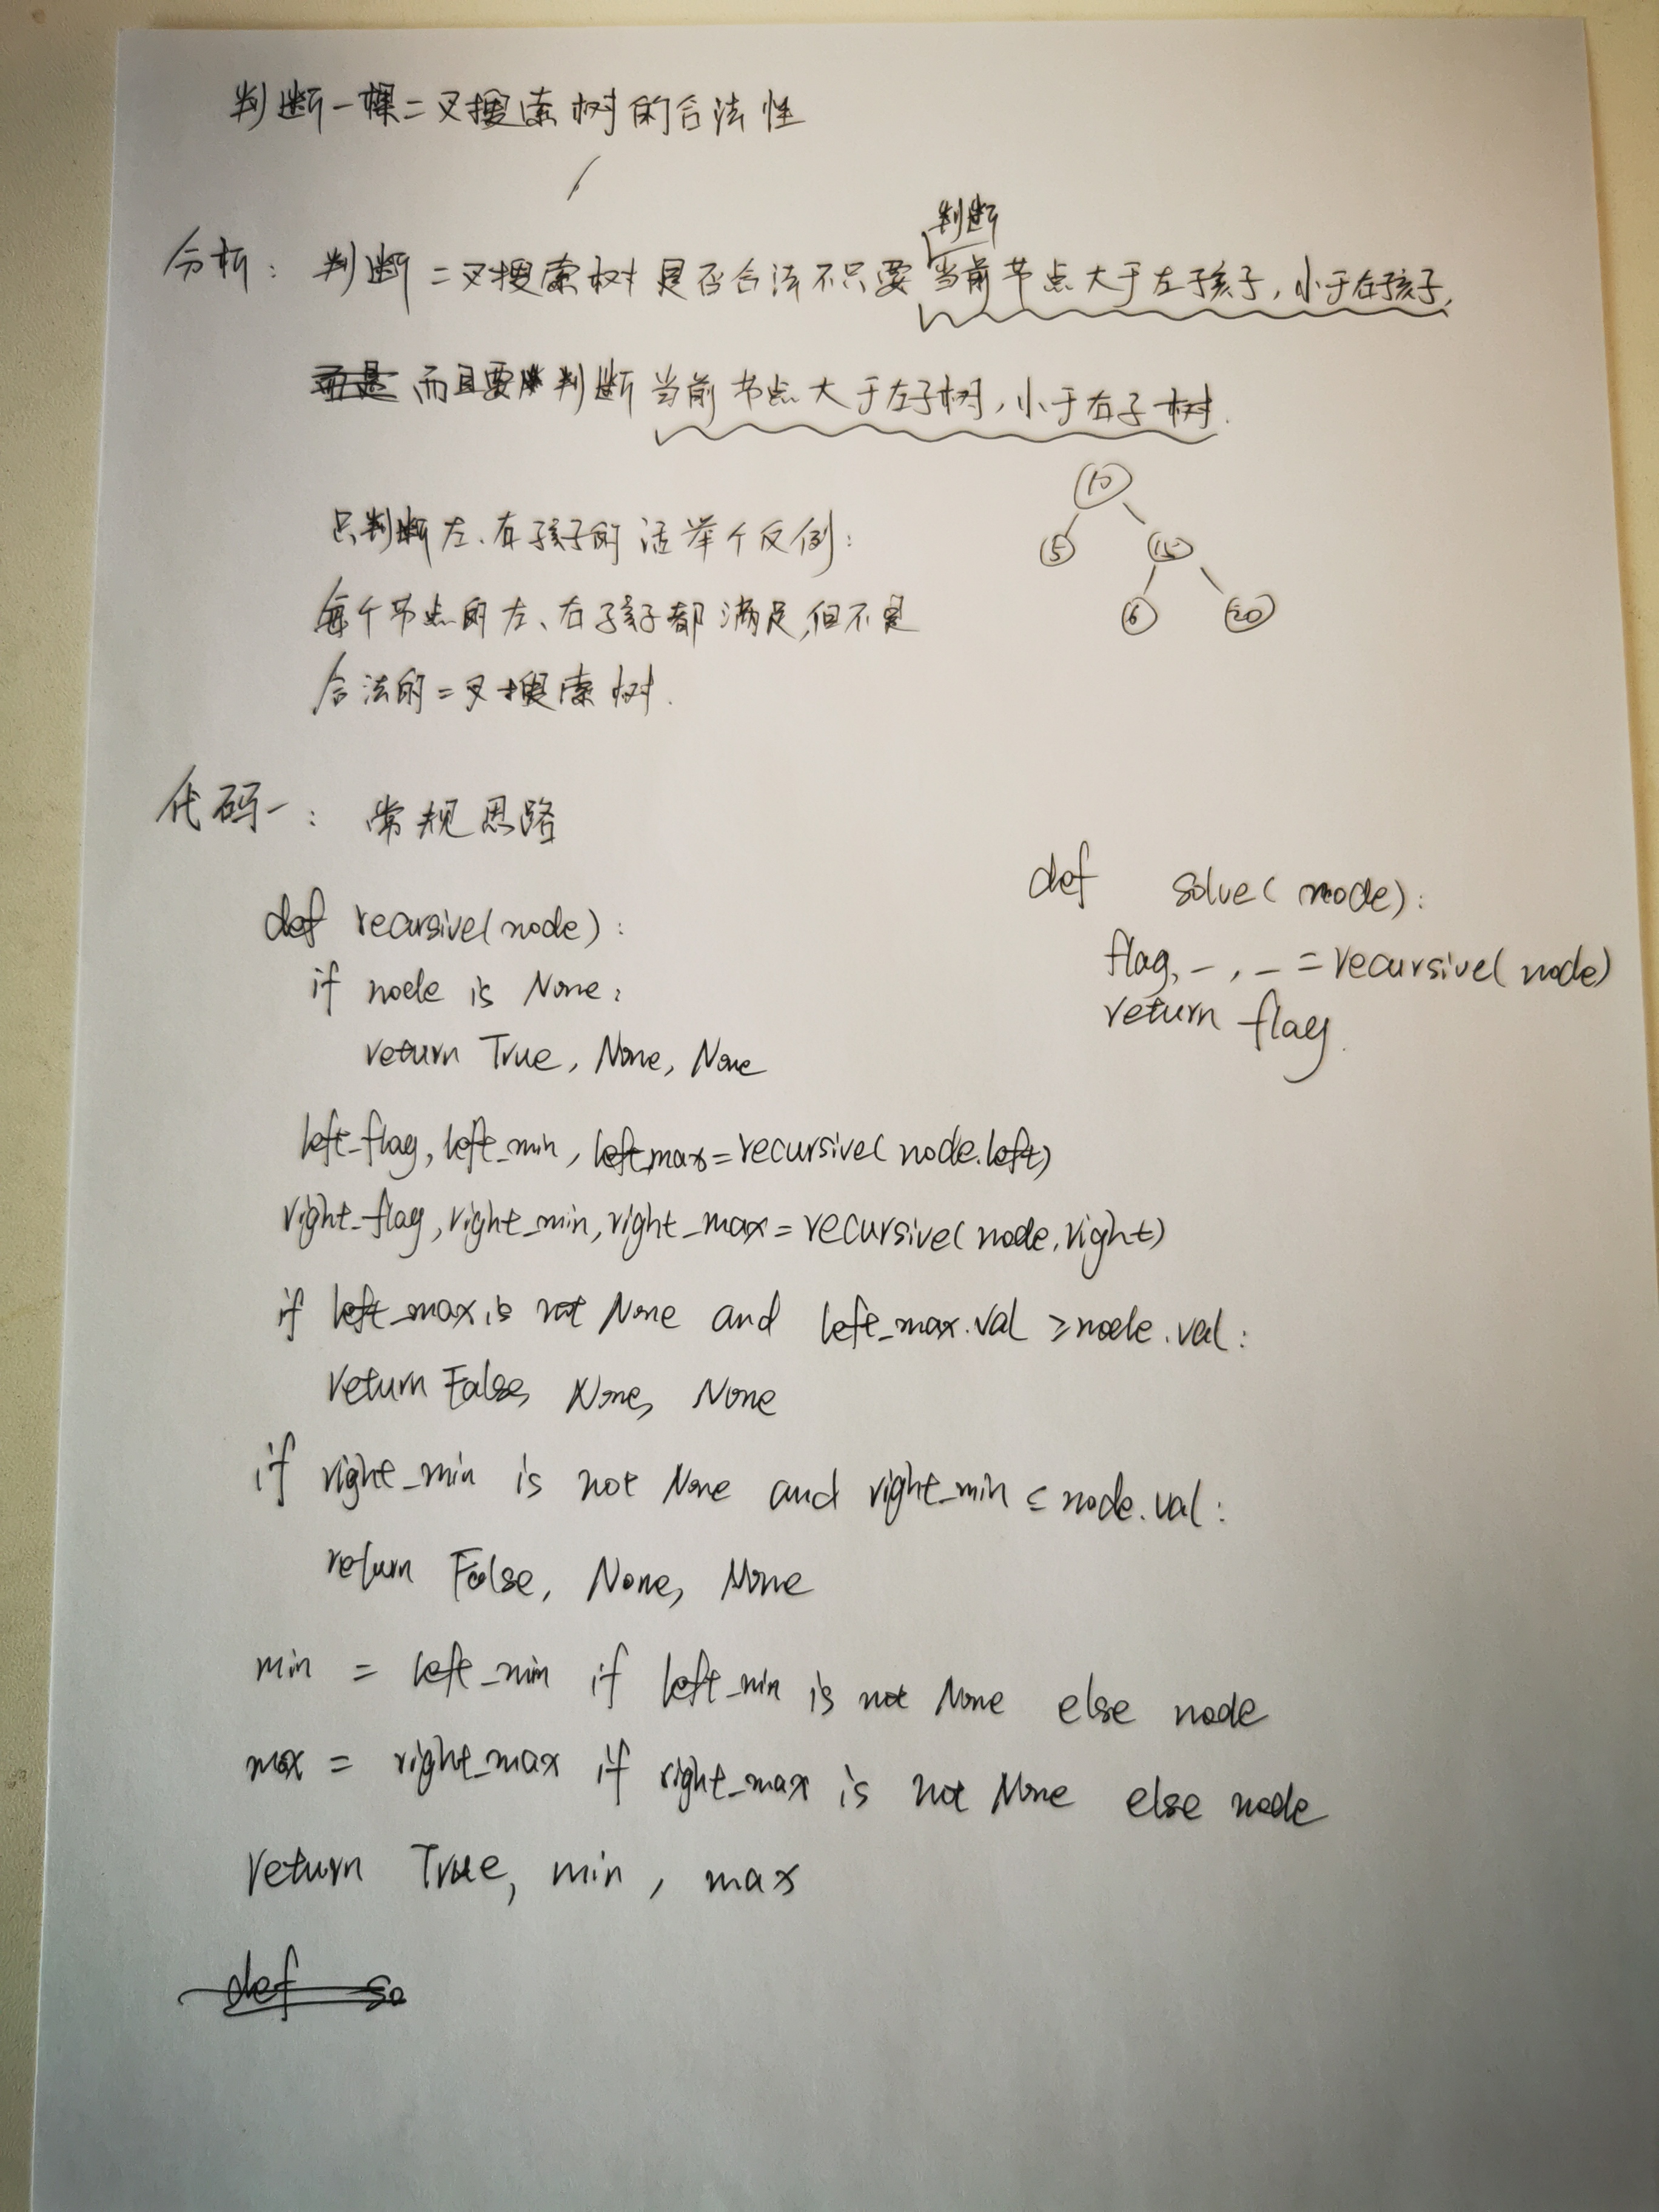 判断一棵二叉搜索树的合法性
分析: 判断二叉搜索树是否合法不只要判断当前节点大于左孩子, 小于右孩子,
而且要判断当前节点大于左子树, 小于右子树.
只判断左、右孩子的话举个反例:
每个节点的左、右孩子都满足,但不是
合法的二叉搜索树.
10
5 15
6 20
代码一: 常规思路
def recursive(node):
if node is None:
return True, None, None
left_flag, left_min, left_max = recursive(node.left)
right_flag, right_min, right_max = recursive(node.right)
if left_max is not None and left_max.val ≥ node.val:
return False, None, None
if right_min is not None and right_min ≤ node.val:
return False, None, None
min = left_min if left_min is not None else node
max = right_max if right_max is not None else node
return True, min, max
def so
def solve(node):
flag, _, _ = recursive(node)
return flag.